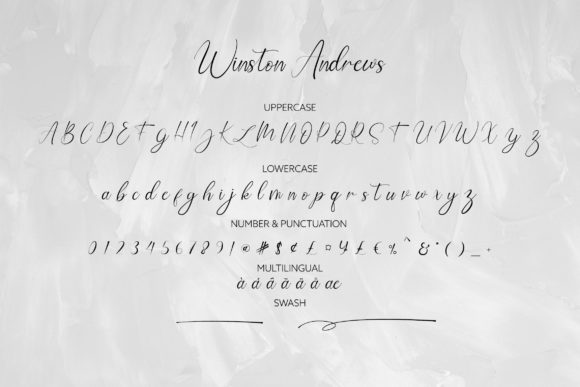 Winston Andrews
UPPERCASE
A B C D E F G H I J K L M N O P Q R S T U V W X Y Z
LOWERCASE
a b c d e f g h i j k l m n o p q r s t u v w x y z
NUMBER & PUNCTUATION
0 1 2 3 4 5 6 7 8 9 ! @ # $ ¢ £ ¤ ¥ £ € % ^ & * ( ) _ +
MULTILINGUAL
à á â ã ä å æ
SWASH